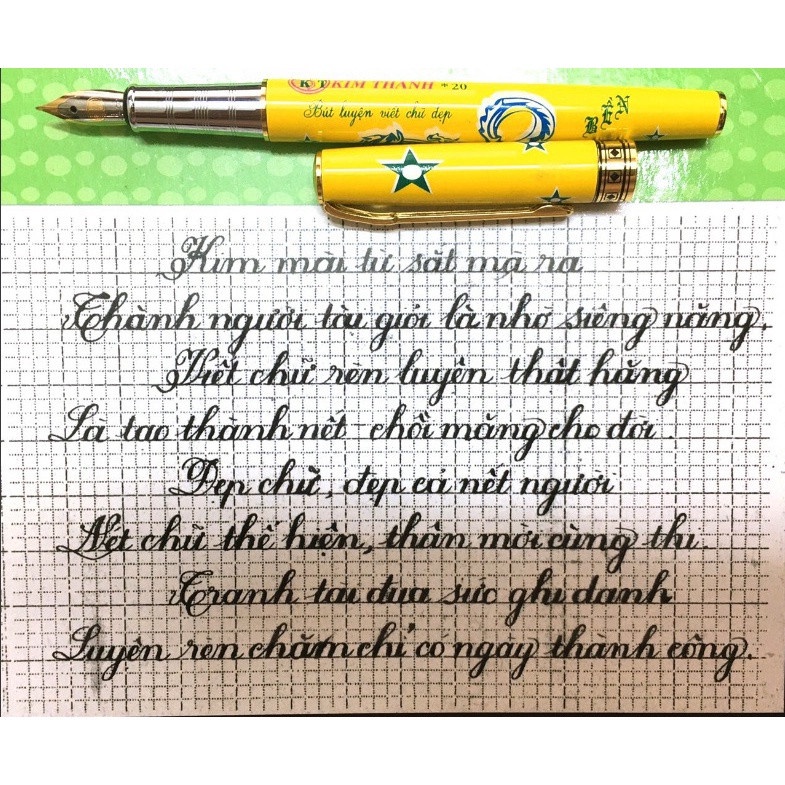 KT KIM THANH * 20
Bút luyện viết chữ đẹp
BẾN
Kim mài từ sắt mà ra
Thành người tài giỏi là nhờ siêng năng.
Viết chữ rèn luyện thật hăng
Là tạo thành nết chồi măng cho đời.
Đẹp chữ, đẹp cả nết người
Nét chữ thể hiện, thân mời cùng thi.
Tranh tài đua sức ghi danh
Luyện rèn chăm chỉ có ngày thành công.